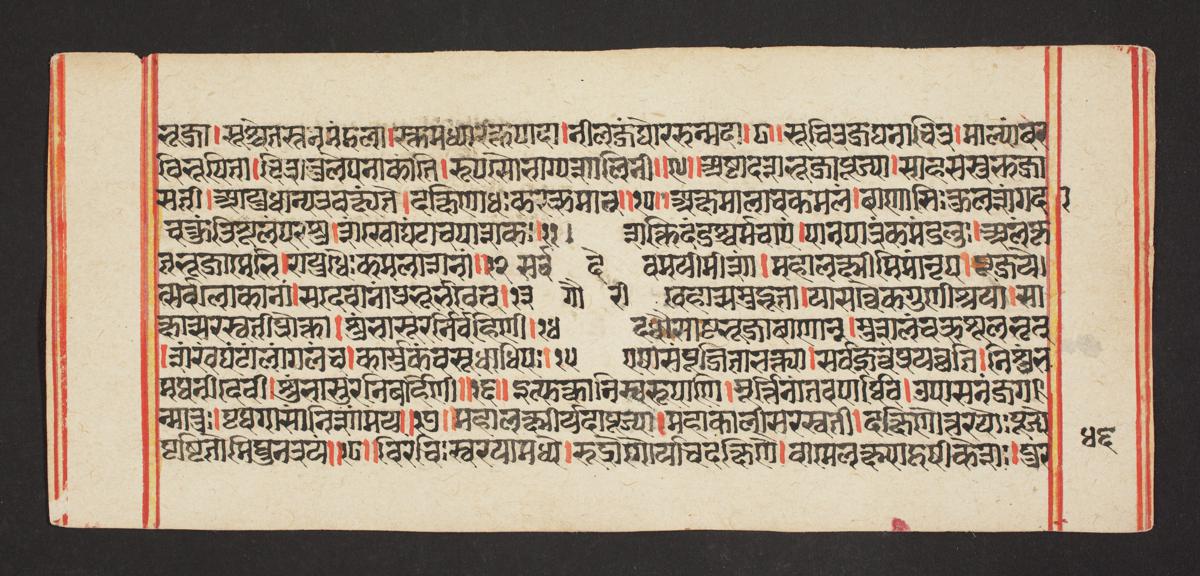 भूजा। सुश्वेतस्तनमंडला। रक्तमध्यारक्तपादा। नीलजंघोरुरुन्मदा।८। सूचित्रजघनाचित्र। माल्यांबर
विभूषिता। चित्रानुलेपनाकांति। रूपसौभाग्यशालिनी॥९॥ अष्टादशभूजापूज्या। सासहस्रभूजा
सती। आयुधान्यत्रवक्ष्यंते। दक्षिणाधःकरक्रमात्॥१०॥ अक्षमालाचकमलं। बाणोसिःकुलशंगद
चक्रंत्रिशूलंपरशु। शंखोघंटाचपाशकः॥११। शक्तिदंडश्चर्मचापं। पानपात्रंकमंडलुः। अलंकृ
तभूजामेभि। रायुधैःकमलाशनां॥१२ सर्व दे वमयीमीशां। महालक्ष्मीमिमांनृप। पूजये।
त्सर्वलोकानां। सदेवानांप्रभूर्भवेत्।१३ गौ री देहात्समुद्भूता। यासात्वैकगुणाश्रया। सा
क्षात्सरस्वतीप्रोक्ता। शुंभासूरनिर्बर्हिणी।१४ दधौचाष्टभूजाबाणान्। मुशलंचक्रशूलभृत्
। शंखघंटांलांगलंच। कार्मुकंवसूधाधिपः।१५ एषासंपूजिताभक्त्या। सर्वज्ञत्वंप्रयच्छति। निशुंभ
मथनीदेवी। शुंभासुरनिबर्हिणी॥१६॥ इत्युक्तानिस्वरूपाणि। मूर्तिनांतवपार्थिव। उपासनंजग।
न्मातुः। पृथगासांनिशामय॥१७॥ महालक्ष्मीर्यदापूज्या। महाकालीसरस्वती। दक्षिणोत्तरयोःपूज्य
पृष्टतोमिथुनत्रयं॥१८॥ विरंचिःस्वरयामध्ये। रुद्रोगौर्याचदक्षिणे। वामेलक्ष्म्याहृषीकेशः। पुर
४६